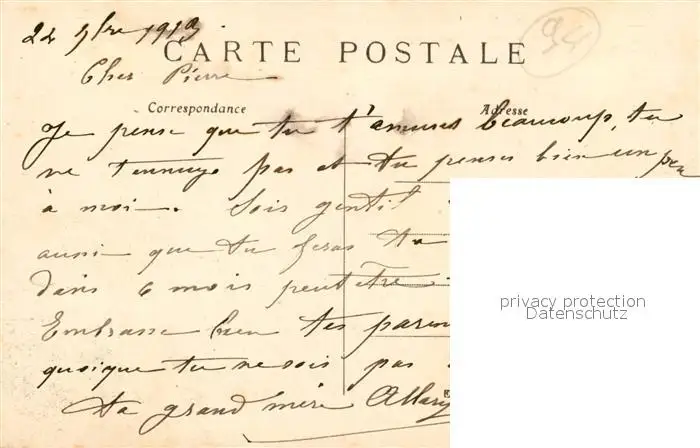 22 9bre 1913
94
CARTE POSTALE
Cher Pierre
Correspondance
Adresse
Je pense que tu t'amuses beaucoup, tu
ne t'ennuye pas et tu penses bien un peu
à moi. Sois gentil
aussi que tu feras ta
dans 6 mois peut être
Embrasse bien tes paren
quoique tu ne sois pas
Ta grand mère
privacy protection
Datenschutz